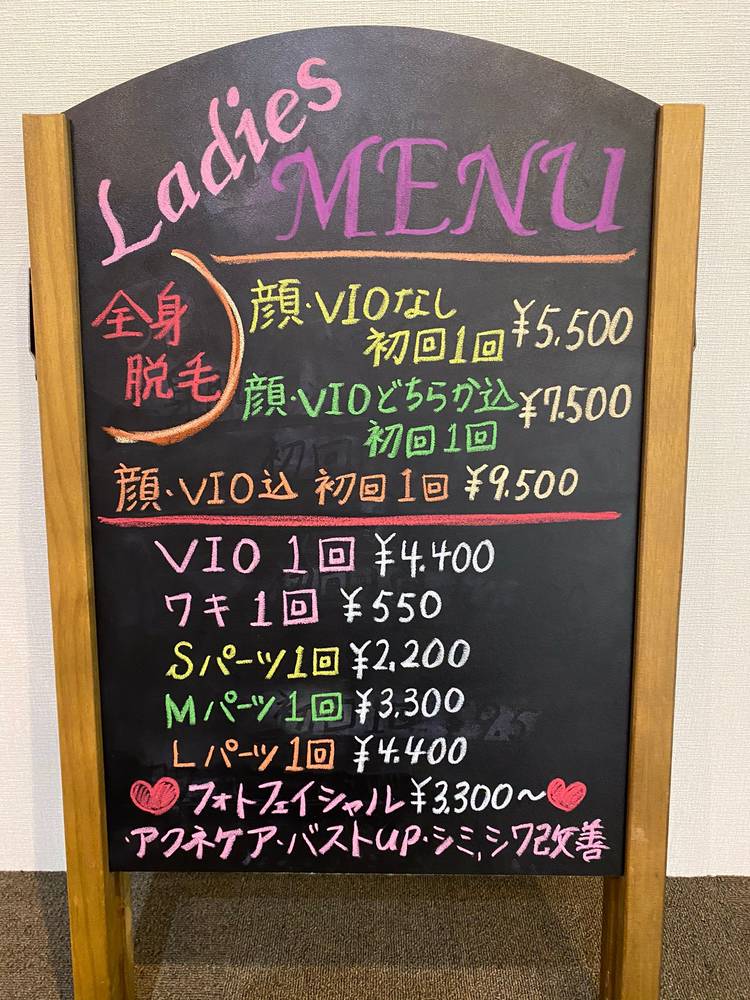 Ladies
MENU
全身
脱毛
顔・VIOなし
初回1回 ¥5,500
顔・VIOどちらか込 ¥7,500
初回1回
顔・VIO込 初回1回 ¥9,500
VIO 1回 ¥4,400
ワキ 1回 ¥550
Sパーツ1回 ¥2,200
Mパーツ1回 ¥3,300
Lパーツ1回 ¥4,400
♥フォトフェイシャル ¥3,300〜♥
・アクネケア・バストUP・シミ,シワ改善